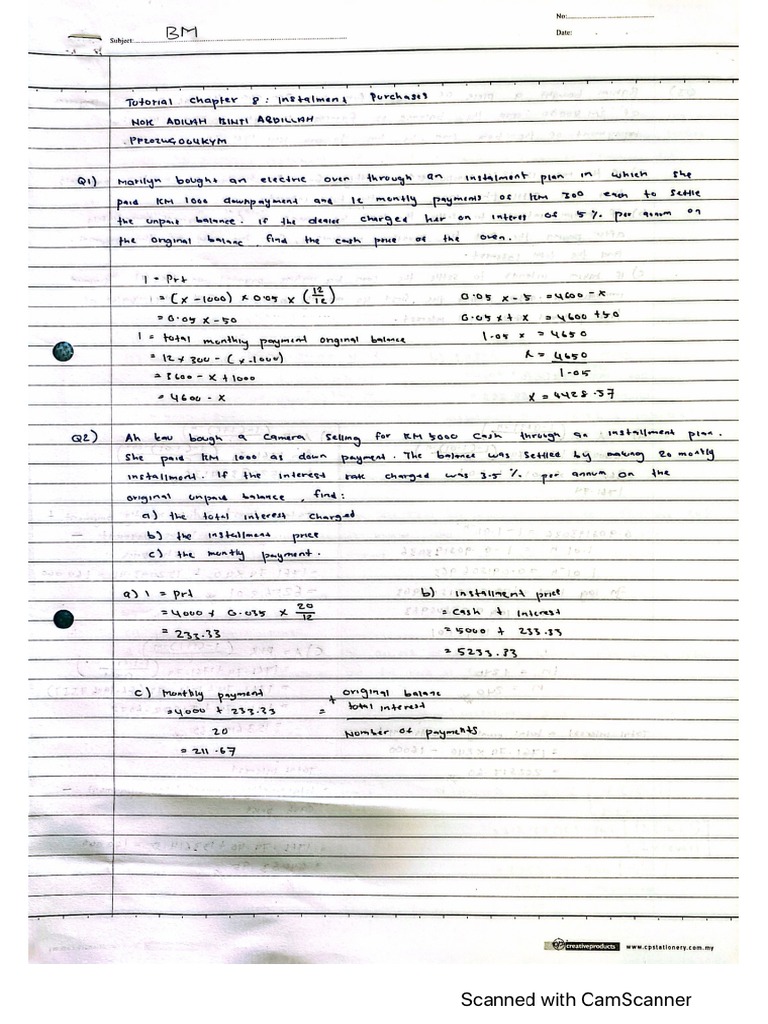 No:
BM
Subject:
Date:
Tutorial chapter 8: Instalment Purchases
NOR ADILAH BINTI ABDILLAH
Q1) Marilyn bought an electric oven through an instalment plan in which she
paid RM 1000 downpayment and 12 montly payments of RM 300 each to settle
the unpaid balance. If the dealer charged her on interest of 5 %. per annum on
the original balance, find the cash price of the oven.
I = Prt
I = (x - 1000) x 0.05 x (12/12)
= 0.05 x - 50
I = total monthly payment original balance
= 12 x 300 - (x - 1000)
= 3600 - x + 1000
= 4600 - x
0.05 x - 5 = 4600 - x
0.05 x + x = 4600 + 50
1.05 x = 4650
x = 4650
1.05
x = 4428.57
Q2) Ah Lau bough a camera selling for RM 5000 cash through an installment plan.
She paid RM 1000 as down payment. The balance was settled by making 20 montly
installment. If the interest rate charged was 3.5 %. per annum on the
original unpaid balance, find:
a) the total interest charged
b) the installment price
c) the montly payment.
a) I = Prt
= 4000 x 0.035 x 20/12
= 233.33
b) installment price
= cash + Interest
= 5000 + 233.33
= 5233.33
c) Monthly payment
= 4000 + 233.33
20
= 211.67
original balanc
+ total interest
=
Number of payments
creativeproducts www.cpstationery.com.my
Scanned with CamScanner